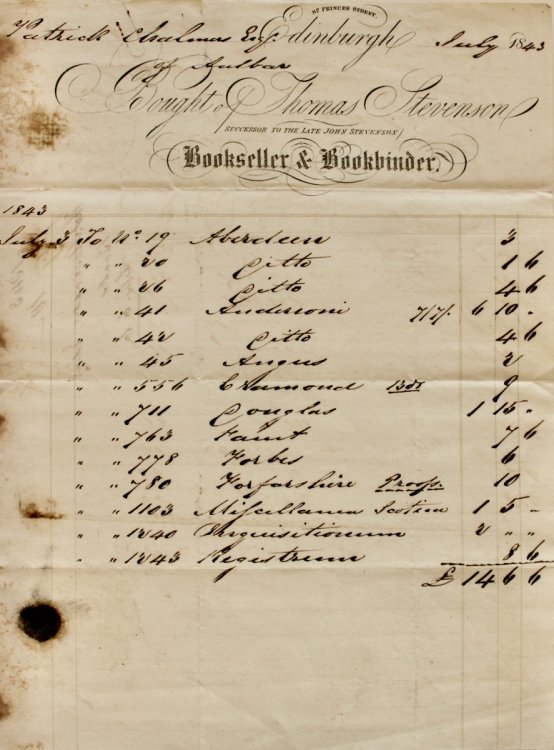 87 PRINCES STREET.
Patrick Chalmers Esqr. Edinburgh July 1843
of Aulbar
Bought of Thomas Stevenson
(SUCCESSOR TO THE LATE JOHN STEVENSON)
Bookseller & Bookbinder.
1843
July 3 To No. 19 Aberdeen 3
" " 20 Ditto 1 6
" " 26 Ditto 4 6
" " 41 Andersoni 7/7/. 6 10 "
" " 42 Ditto 4 6
" " 45 Angus 2
" " 556 9
" " 711 Douglas 1 15 "
" " 763 7 6
" " 778 Forbes 6
" " 780 Forfarshire Proofs. 10
" " 1103 Miscellanea Scotica 1 5 "
" " 1240 Inquisitionum 2 " "
" " 1243 Registrum 8 6
£ 14 6 6